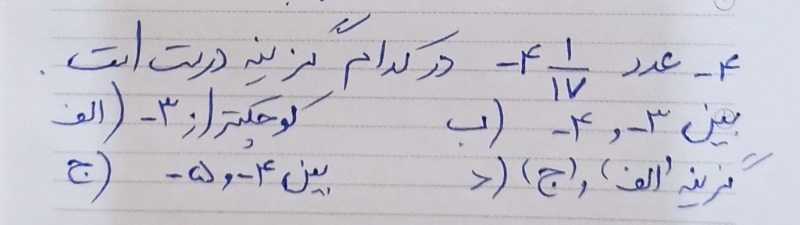 ۴- عدد -۴ ۱/۱۷ در کدام گزینه درست است.
الف) کوچکتر از -۳ ب) بین -۳ و -۴
ج) بین -۴ و -۵ د) گزینه (الف) و (ج)